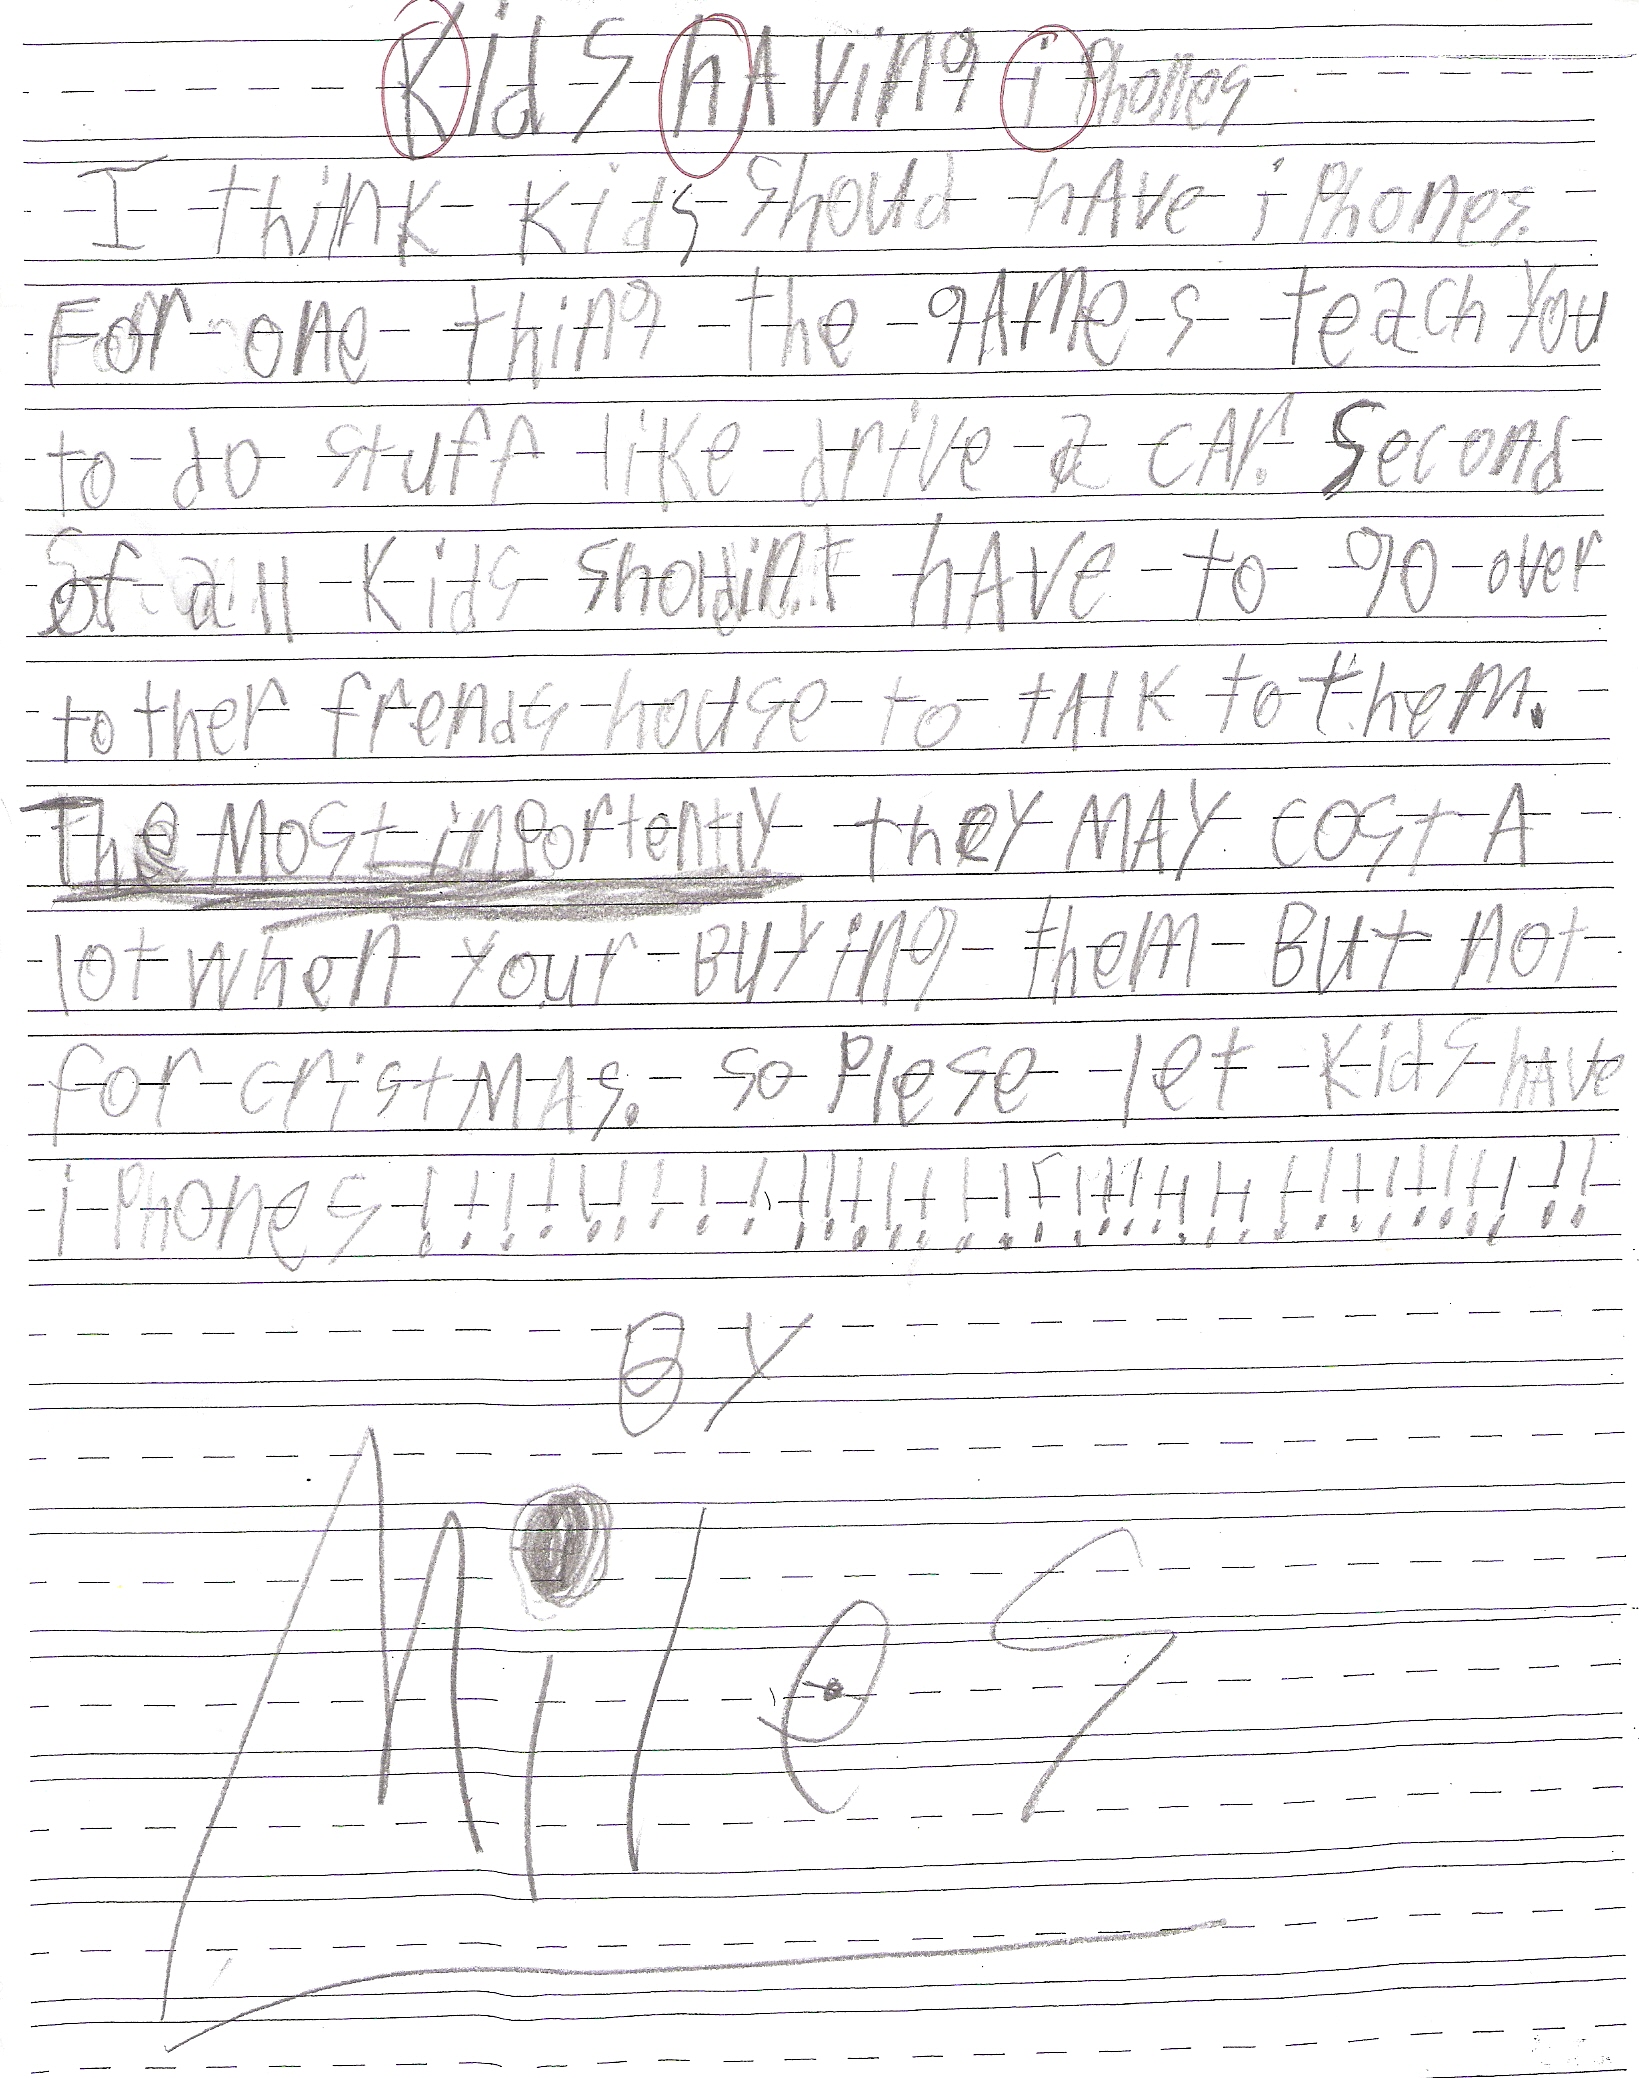 Kids hAving iPhones
I think kids should hAve iPhones.
For one thing the gAmes teach You
to do stuff like drive a cAr. Second
of all kids shouldint hAve to go over
to ther frends house to tAlk to them.
The Most inportently they MAY cost A
lot when your BUYing them BUt not
for cristMAs. so Plese let kids hAve
iPhones !!!!!!!!!!!!!!!!!!!!!!!!!!!!!!!!!!!!
BY
Miles